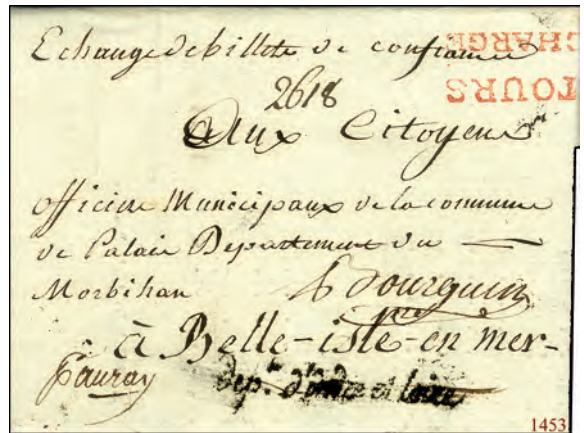 Echange de billets de confiance
CHARGÉ
TOURS
2618
Aux Citoyens
officiers Municipaux de la commune
de Palais Departement du
Morbihan
Bourguin
à Belle-isle-en mer-
p auray
dep.t d'indre et loire
1453